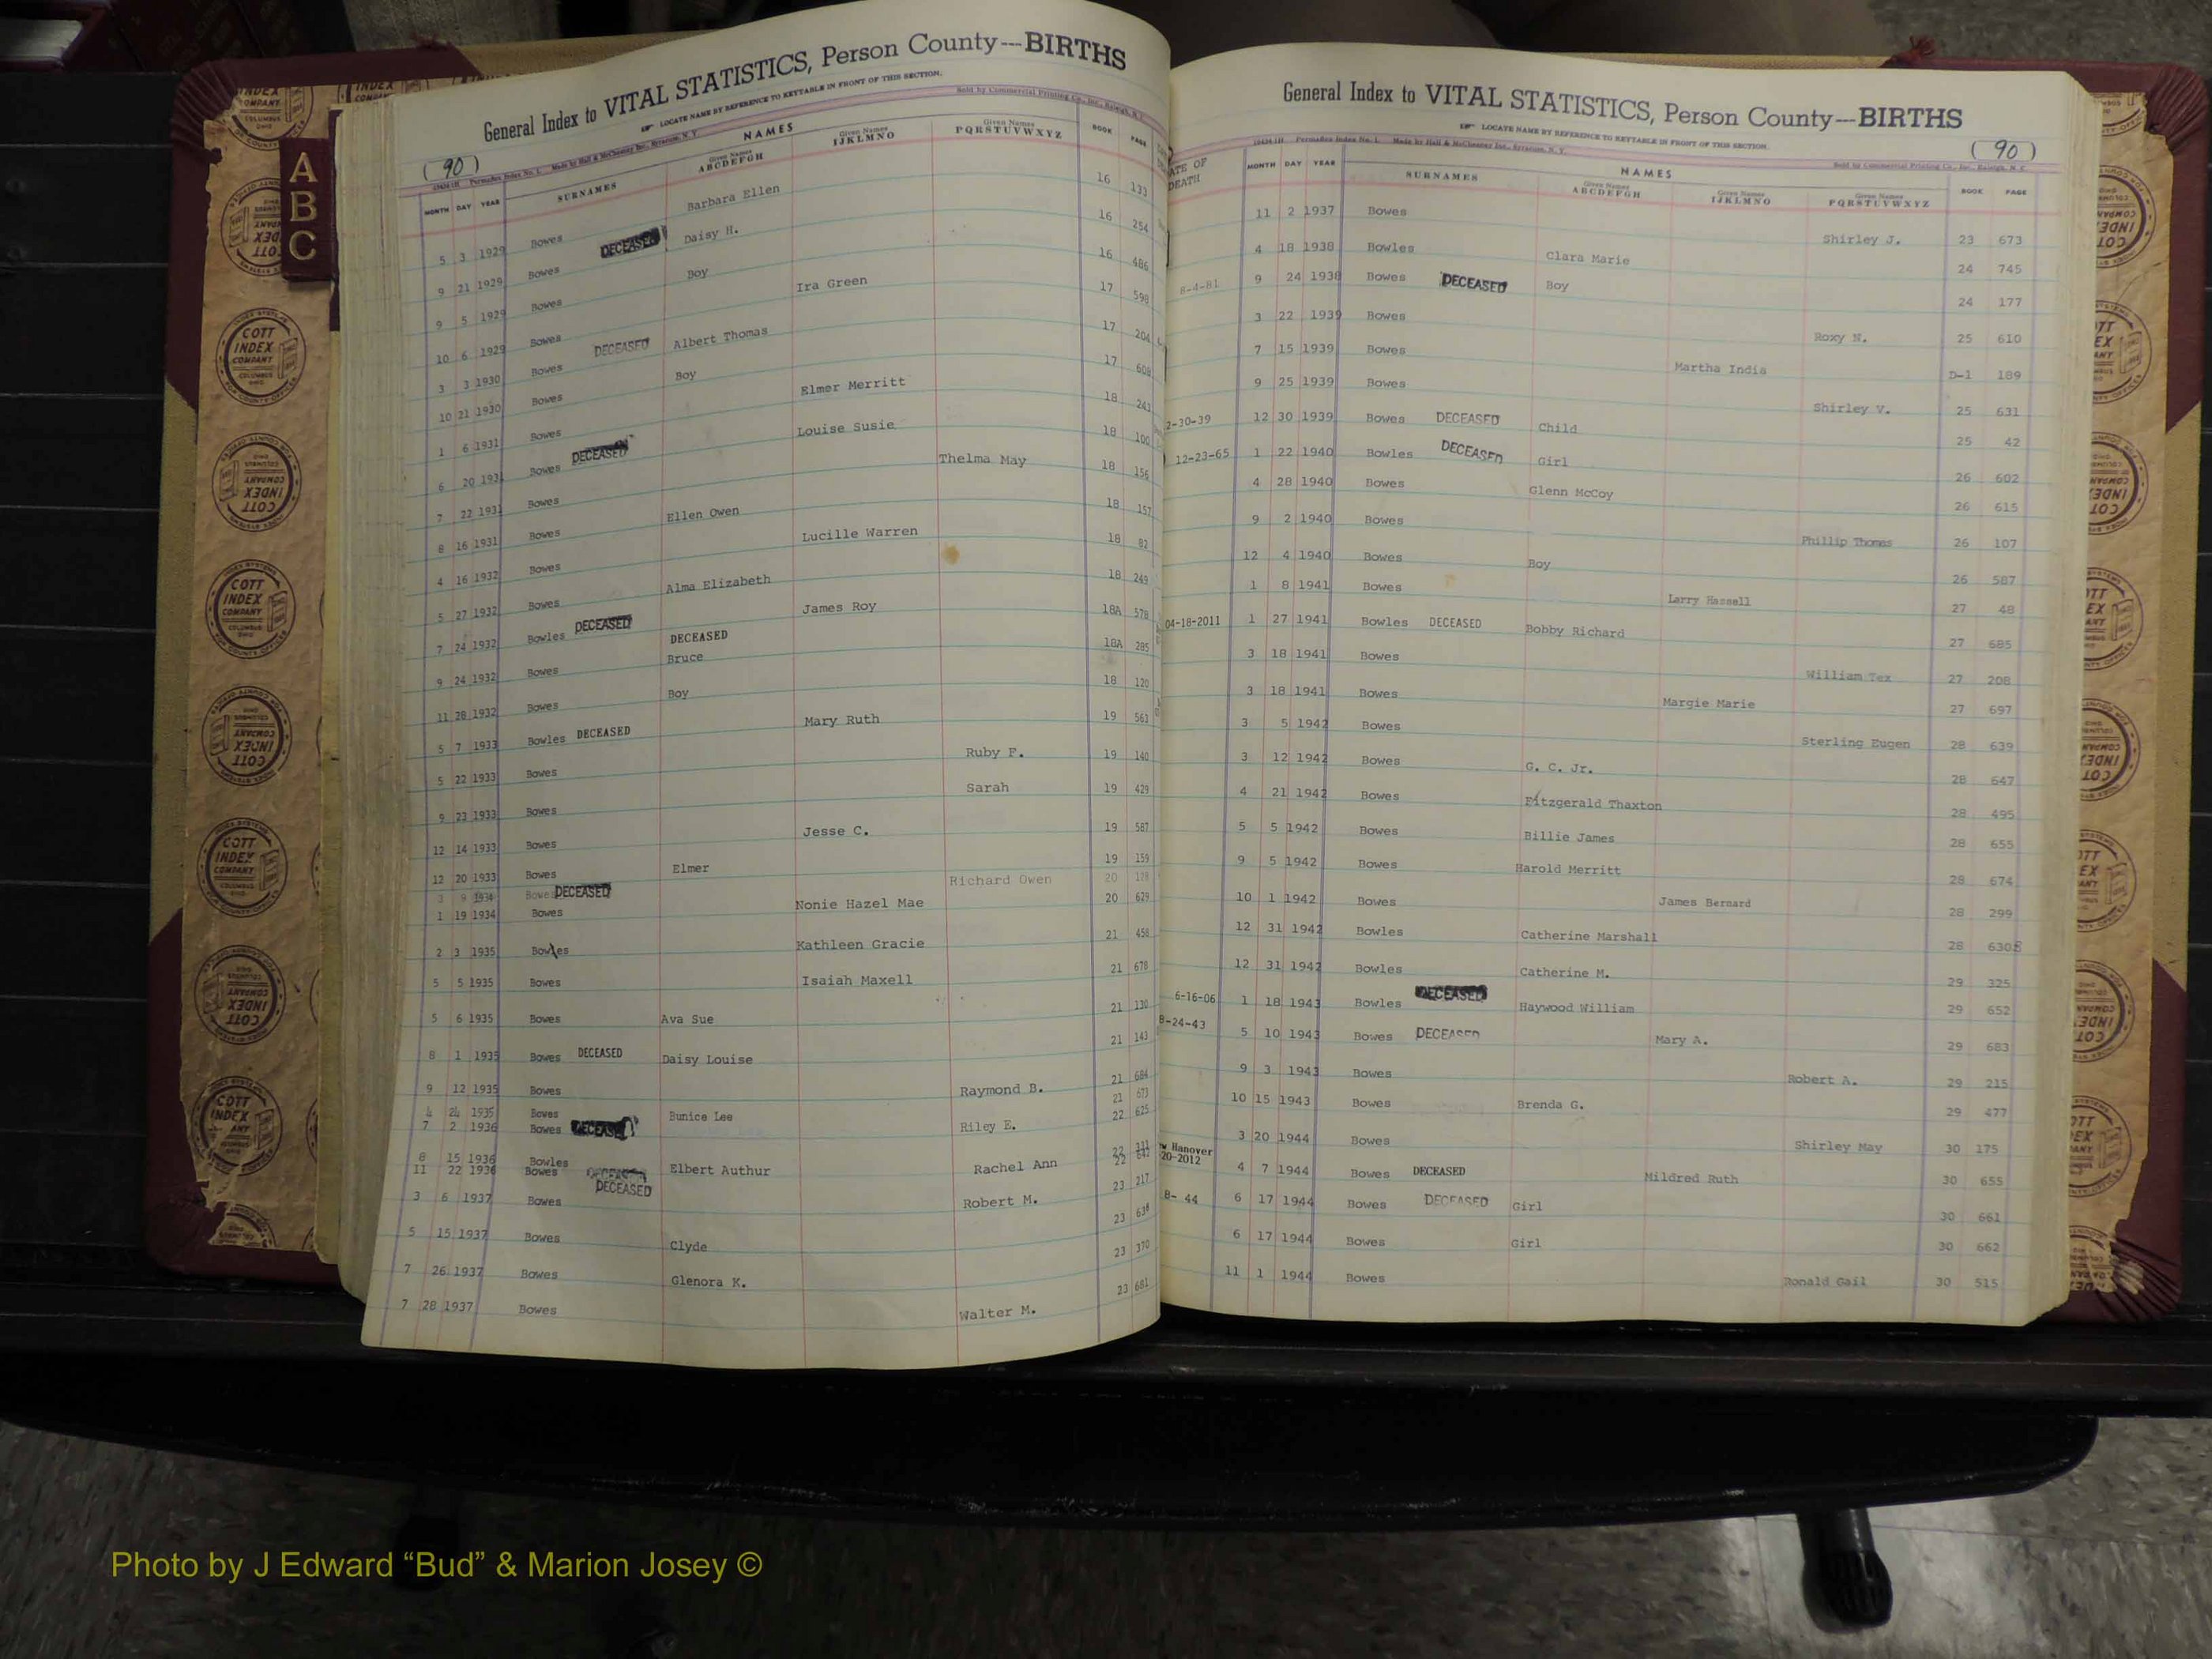 General Index to VITAL STATISTICS, Person County---BIRTHS
LOCATE NAME BY REFERENCE TO KEYTABLE IN FRONT OF THIS SECTION.
Sold by Commercial Printing Co., Inc., Raleigh, N. C.
(90)
MONTH DAY YEAR SURNAMES NAMES Given Names ABCDEFGH Given Names IJKLMNO Given Names PQRSTUVWXYZ BOOK PAGE
5 3 1929 Bowes Barbara Ellen 16 133
9 21 1929 Bowes DECEASED Daisy H. 16 254
9 5 1929 Bowes Boy 16 486
10 6 1929 Bowes Ira Green 17 598
3 3 1930 Bowes DECEASED Albert Thomas 17 204
10 21 1930 Bowes Boy 17 608
1 6 1931 Bowes Elmer Merritt 18 241
6 20 1931 Bowes DECEASED Louise Susie 18 100
7 22 1931 Bowes Thelma May 18 156
8 16 1931 Bowes Ellen Owen 18 157
4 16 1932 Bowes Lucille Warren 18 82
5 27 1932 Bowes Alma Elizabeth 18 249
7 24 1932 Bowles DECEASED James Roy 18A 578
9 24 1932 Bowes DECEASED Bruce 18A 285
11 28 1932 Bowes Boy 18 120
5 7 1933 Bowles DECEASED Mary Ruth 19 561
5 22 1933 Bowes Ruby F. 19 140
9 23 1933 Bowes Sarah 19 429
12 14 1933 Bowes Jesse C. 19 587
12 20 1933 Bowes Elmer 19 159
3 9 1934 Bowes DECEASED Richard Owen 20 128
1 19 1934 Bowes Nonie Hazel Mae 20 629
2 3 1935 Bowles Kathleen Gracie 21 458
5 5 1935 Bowes Isaiah Maxell 21 678
5 6 1935 Bowes Ava Sue 21 130
8 1 1935 Bowes DECEASED Daisy Louise 21 143
9 12 1935 Bowes Raymond B. 21 684
4 24 1935 Bowes Eunice Lee 21 673
7 2 1936 Bowes DECEASED Riley E. 22 625
8 15 1936 Bowles Rachel Ann 22
11 22 1936 Bowes DECEASED Elbert Authur 22
3 6 1937 Bowes DECEASED Robert M. 23 217
5 15 1937 Bowes Clyde 23
7 26 1937 Bowes Glenora K. 23 370
7 28 1937 Bowes Walter M. 23 681
General Index to VITAL STATISTICS, Person County---BIRTHS
LOCATE NAME BY REFERENCE TO KEYTABLE IN FRONT OF THIS SECTION.
Made by Hall & McChesney Inc., Syracuse, N. Y.
Sold by Commercial Printing Co., Inc., Raleigh, N. C.
(90)
DEATH MONTH DAY YEAR SURNAMES NAMES Given Names ABCDEFGH Given Names IJKLMNO Given Names PQRSTUVWXYZ BOOK PAGE
11 2 1937 Bowes Shirley J. 23 673
4 18 1938 Bowles Clara Marie 24 745
8-4-81 9 24 1938 Bowes DECEASED Boy 24 177
3 22 1939 Bowes Roxy N. 25 610
7 15 1939 Bowes Martha India D-1 189
9 25 1939 Bowes Shirley V. 25 631
2-30-39 12 30 1939 Bowes DECEASED Child 25 42
12-23-65 1 22 1940 Bowles DECEASED Girl 26 602
4 28 1940 Bowes Glenn McCoy 26 615
9 2 1940 Bowes Phillip Thomas 26 107
12 4 1940 Bowes Boy 26 587
1 8 1941 Bowes Larry Hassell 27 48
04-18-2011 1 27 1941 Bowles DECEASED Bobby Richard 27 685
3 18 1941 Bowes William Tex 27 208
3 18 1941 Bowes Margie Marie 27 697
3 5 1942 Bowes Sterling Eugen 28 639
3 12 1942 Bowes G. C. Jr. 28 647
4 21 1942 Bowes Fitzgerald Thaxton 28 495
5 5 1942 Bowes Billie James 28 655
9 5 1942 Bowes Harold Merritt 28 674
10 1 1942 Bowes James Bernard 28 299
12 31 1942 Bowles Catherine Marshall 28 630
12 31 1942 Bowles Catherine M. 29 325
6-16-06 1 18 1943 Bowles DECEASED Haywood William 29 652
8-24-43 5 10 1943 Bowes DECEASED Mary A. 29 683
9 3 1943 Bowes Robert A. 29 215
10 15 1943 Bowes Brenda G. 29 477
3 20 1944 Bowes Shirley May 30 175
Hanover 20-2012 4 7 1944 Bowes DECEASED Mildred Ruth 30 655
8- 44 6 17 1944 Bowes DECEASED Girl 30 661
6 17 1944 Bowes Girl 30 662
11 1 1944 Bowes Ronald Gail 30 515
A
B
C
COTT INDEX COMPANY
Photo by J Edward “Bud” & Marion Josey ©